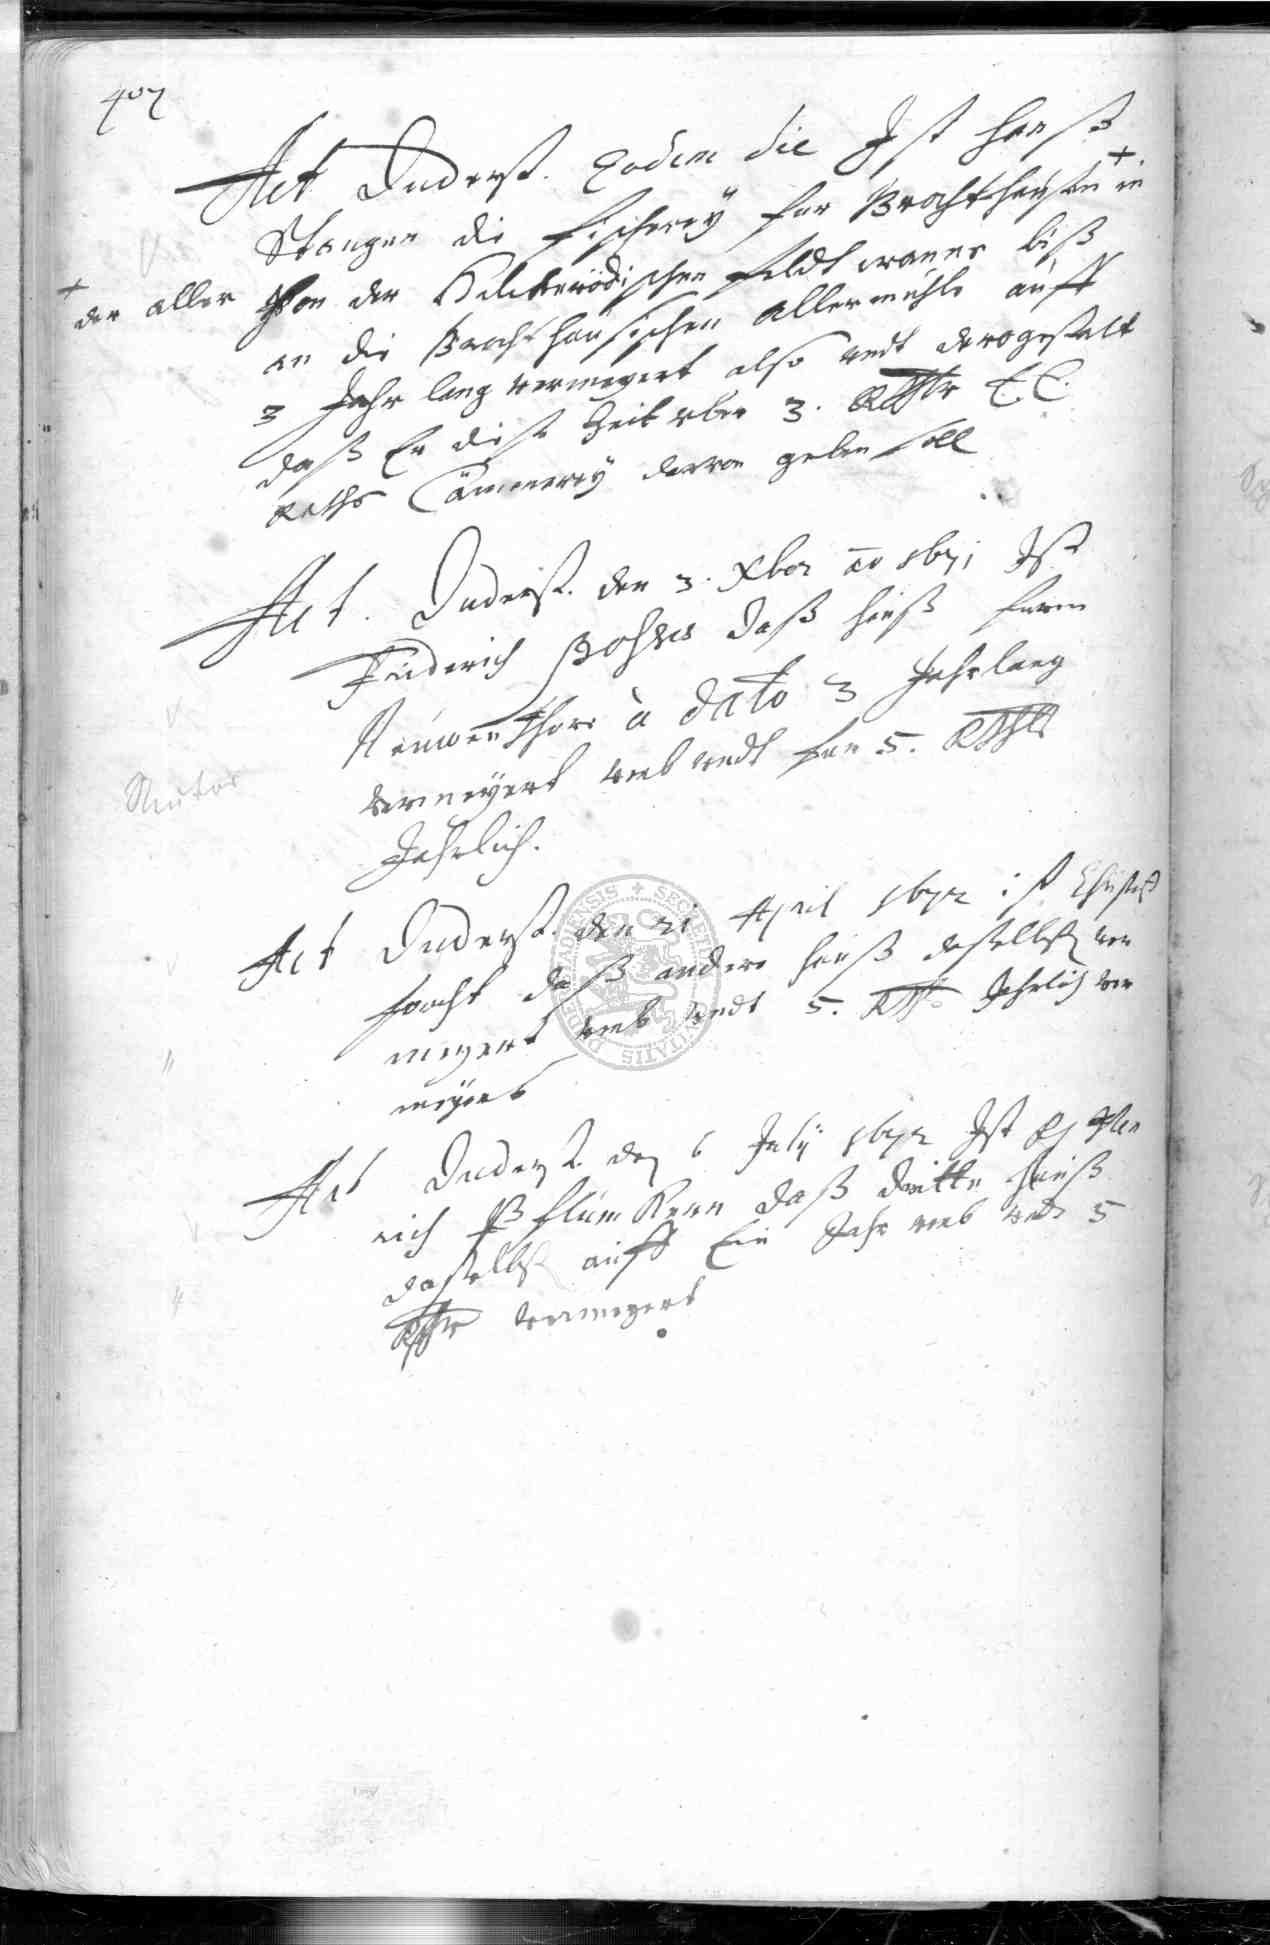 407
Act Duderst. Eodem die Ist Hanß
Stangen die fischerey für Brochthausen + in
+ der aller Von der Hilkerödischen feldt wannen biß
an die Brochthausischen Allermühle auff
3 Jahr lang vermeyert also undt derogestalt
daß Er diese Zeit uber 3. Rthlr E. E.
Raths Cämmerey darvon geben soll
Act. Duderst. den 3. Xbr ao 1671 Ist
Friderich daß hauß fürm
Neuwen Thore à dato 3 Jahr lang
vermeyert umb undt für 5. Rthlr
Jahrlich.
Mutor
Act Duderst. den 21 April 1672 ist Christoff
hecht daß andere hauß daselbst ver
meyert umb undt 5. Rthlr Jahrlich ver
meyert
Act Duderst. den 6 July 1672 Ist
rich daß dritte hauß
daselbst auff Ein Jahr umb undt 5
Rthlr vermeyert
SECRETUM CIVITATIS DUDERSTADIENSIS